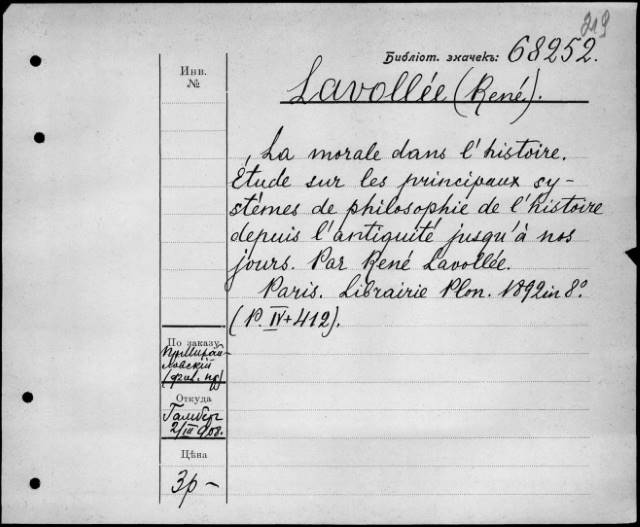 319
Библіот. значекъ: 68252.
Инв.
№
Lavollée (René).
La morale dans l'histoire.
Étude sur les principaux sy-
stèmes de philosophie de l'histoire
depuis l'antiquité jusqu'à nos
jours. Par René Lavollée.
Paris. Librairie Plon. 1892 in 8°.
(P. IV+412).
По заказу
Откуда
2/III 908.
Цѣна
3р –